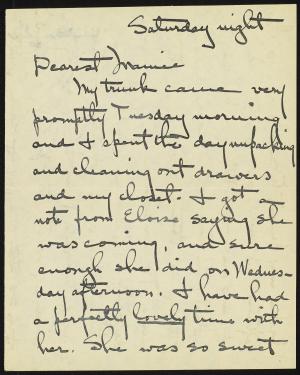 Saturday night
Dearest Mamie
My trunk came very
promptly Tuesday morning
and I spent the day unpacking
and cleaning out drawers
and my closet. I got a
note from Eloise saying she
was coming, and sure
enough she did on Wednes-
day afternoon. I have had
a perfectly lovely time with
her. She was so sweet